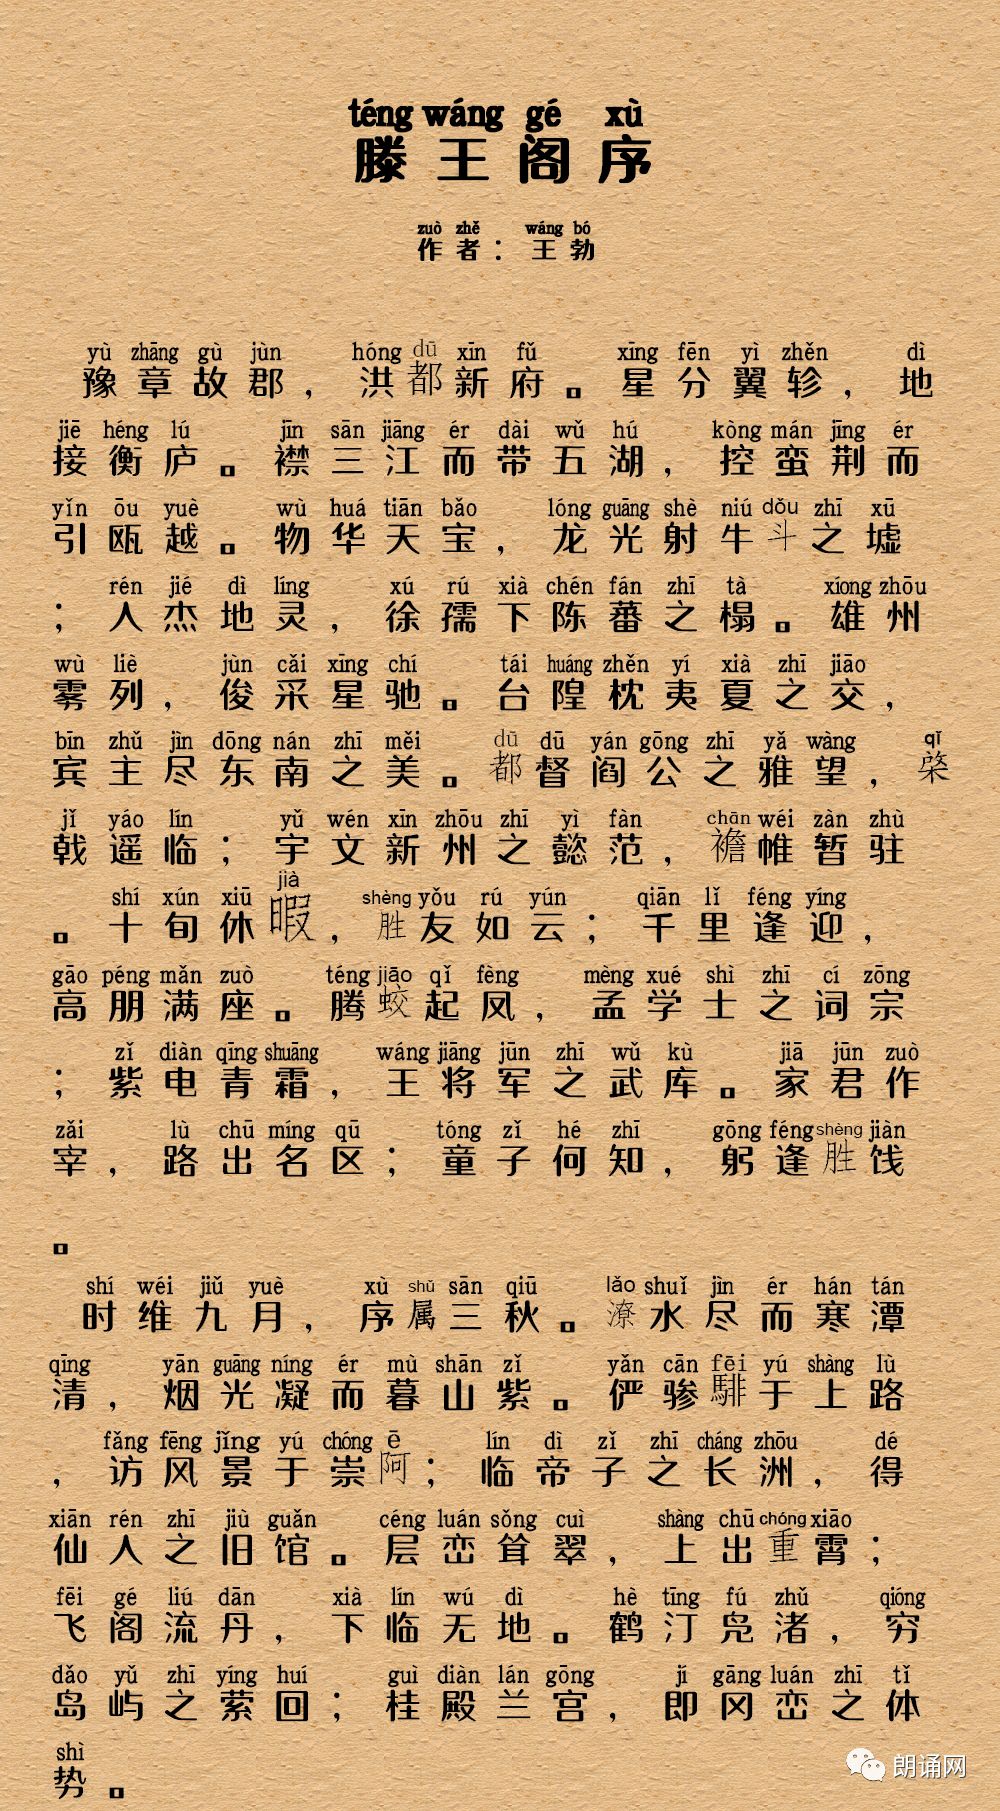 téng wáng gé xù
滕王阁序
zuò zhě wáng bó
作者：王勃
yù zhāng gù jùn hóng dū xīn fǔ xīng fēn yì zhěn dì
豫章故郡，洪都新府。星分翼轸，地
jiē héng lú jīn sān jiāng ér dài wǔ hú kòng mán jīng ér
接衡庐。襟三江而带五湖，控蛮荆而
yǐn ōu yuè wù huá tiān bǎo lóng guāng shè niú dǒu zhī xū
引瓯越。物华天宝，龙光射牛斗之墟
rén jié dì líng xú rú xià chén fán zhī tà xíong zhōu
；人杰地灵，徐孺下陈蕃之榻。雄州
wù liè jùn cǎi xīng chí tái huáng zhěn yí xià zhī jiāo
雾列，俊采星驰。台隍枕夷夏之交，
bīn zhǔ jìn dōng nán zhī měi dū dū yán gōng zhī yǎ wàng qǐ
宾主尽东南之美。都督阎公之雅望，棨
jǐ yáo lín yǔ wén xīn zhōu zhī yì fàn chān wéi zàn zhù
戟遥临；宇文新州之懿范，襜帷暂驻
shí xún xiū jià shèng yǒu rú yún qiān lǐ féng yíng
。十旬休暇，胜友如云；千里逢迎，
gāo péng mǎn zuò téng jiāo qǐ fèng mèng xué shì zhī cí zōng
高朋满座。腾蛟起凤，孟学士之词宗
zǐ diàn qīng shuāng wáng jiāng jūn zhī wǔ kù jiā jūn zuò
；紫电青霜，王将军之武库。家君作
zǎi lù chū míng qū tóng zǐ hé zhī gōng féng shèng jiàn
宰，路出名区；童子何知，躬逢胜饯
。
shí wéi jiǔ yuè xù shǔ sān qiū lǎo shuǐ jìn ér hán tán
时维九月，序属三秋。潦水尽而寒潭
qīng yān guāng níng ér mù shān zǐ yǎn cān fēi yú shàng lù
清，烟光凝而暮山紫。俨骖騑于上路
fǎng fēng jǐng yú chóng ē lín dì zǐ zhī cháng zhōu dé
，访风景于崇阿；临帝子之长洲，得
xiān rén zhī jiù guǎn céng luán sǒng cuì shàng chū chóng xiāo
仙人之旧馆。层峦耸翠，上出重霄；
fēi gé liú dān xià lín wú dì hè tīng fú zhǔ qióng
飞阁流丹，下临无地。鹤汀凫渚，穷
dǎo yǔ zhī yíng huí guì diàn lán gōng jí gāng luán zhī tǐ
岛屿之萦回；桂殿兰宫，即冈峦之体
shì
势。
朗诵网